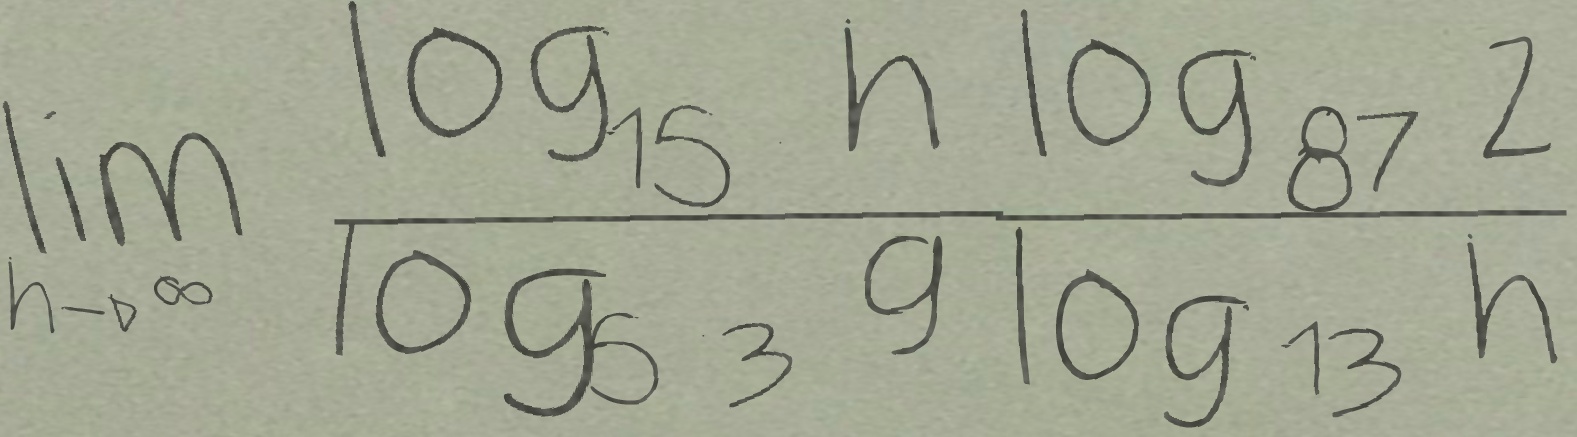 lim h→∞ log₁₅ h log₈₇ 2
log₅ 3 9 log₁₃ h